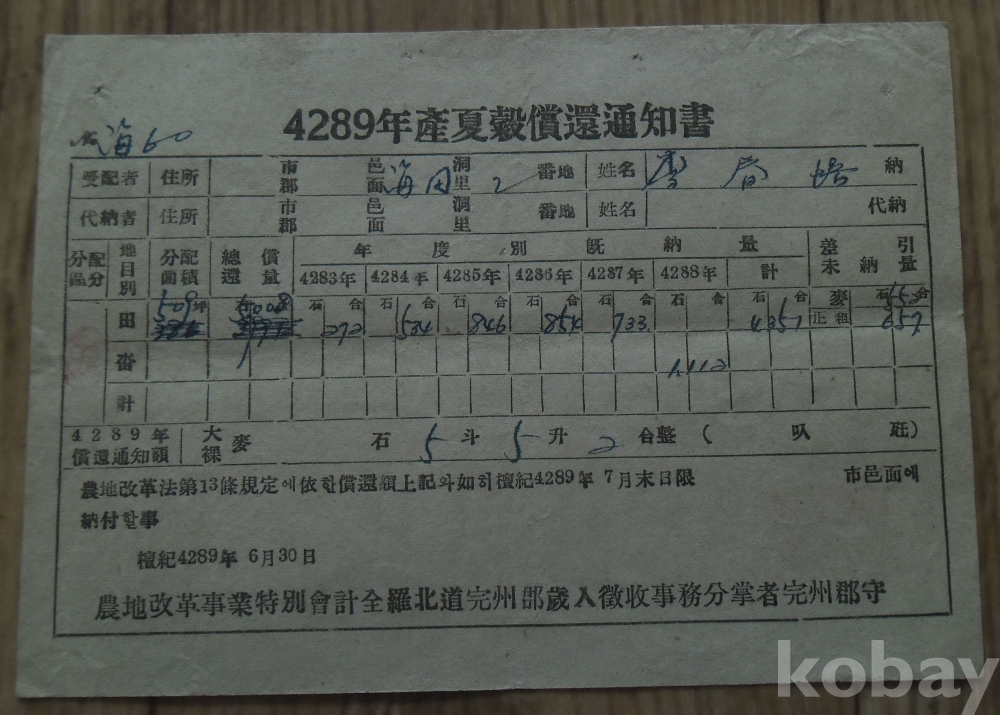 4289年產夏穀償還通知書
海60
受配者 住所 市郡 邑面 海田 洞里 2 番地 姓名 李春 納
代納者 住所 市郡 邑面 洞里 番地 姓名 代納
分配區分 地目別 分配面積 總償還量 年度別旣納量 差引未納量
4283年 4284年 4285年 4286年 4287年 4288年 計
坪 石 合 石 合 石 合 石 合 石 合 石 合 麥 石 合
田 509 272 534 846 854 733 4351 正租 657
畓 1.412
計
4289年償還通知額 大裸麥 石 5斗 5升 2合整 ( 叺 瓩)
農地改革法第13條規定에依한償還額上記와如히檀紀4289年 7月末日限 市邑面에
納付할事
檀紀4289年 6月30日
農地改革事業特別會計全羅北道完州郡歲入徵收事務分掌者完州郡守
kobay